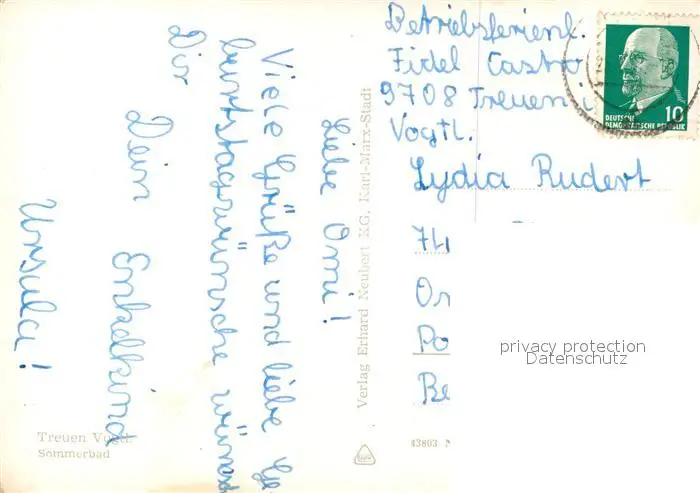 Betriebsferienl.
Fidel Castro
9708 Treuen i
Vogtl.
Lydia Rudert
Or
Po
Be
DEUTSCHE
DEMOKRATISCHE REPUBLIK
10
privacy protection
Datenschutz
Liebe Omi!
Viele Grüße und liebe Ge
burtstagswünsche wünscht
Dir
Dein Enkelkind
Ursula!
Verlag Erhard Neubert KG, Karl-Marx-Stadt
Treuen Vogtl.
Sommerbad
43803